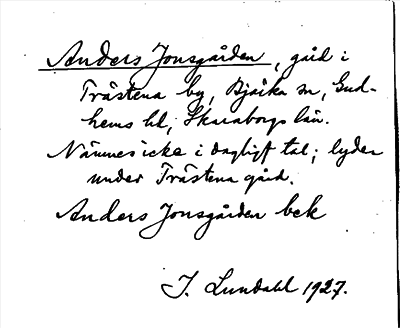 Anders Jonsgården, gård i
Trästena by, Bjärka sn, Gud-
hems hd, Skaraborgs län.
Nämnes icke i dagligt tal; lyder
under Trästena gård.
Anders Jonsgården bek
J. Lundahl 1927.